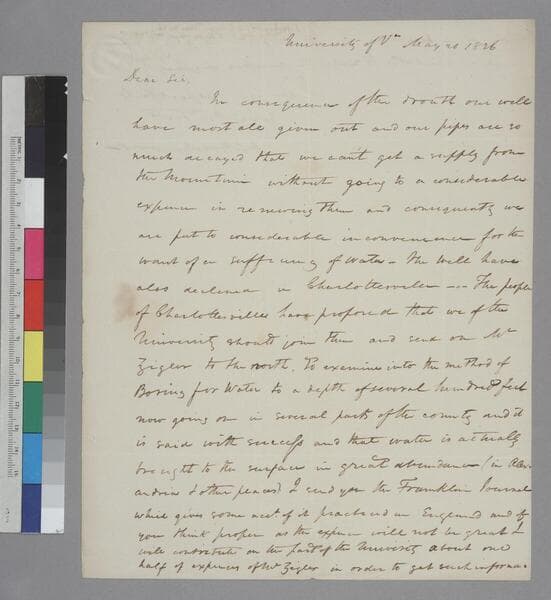 University of Va May 20 1826
Dear Sir,
In consequence of the drouth our well
have most all given out and our pipes are so
much decayed that we cant get a supply from
the Mountain without going to a considerable
expence in renewing them and consequently we
are put to considerable inconvenience for the
want of a sufficiency of water – the well have
also declined in Charlottesville — The people
of Charlottesville have proposed that we of the
University should join them and send on Mr
Zigler to the north, to examine into the method of
Boring for Water to a depth of several hundred feet
now going on in several parts of the country and it
is said with success and that water is actually
brought to the surface in great abundance (in Alex-
andria & other places) I send you the Franklin Journal
which gives some acct of it practised in England and if
you think proper as the expence will not be great I
will contribute on the part of the University about one
half of expences of Mr Zigler in order to get such informa-